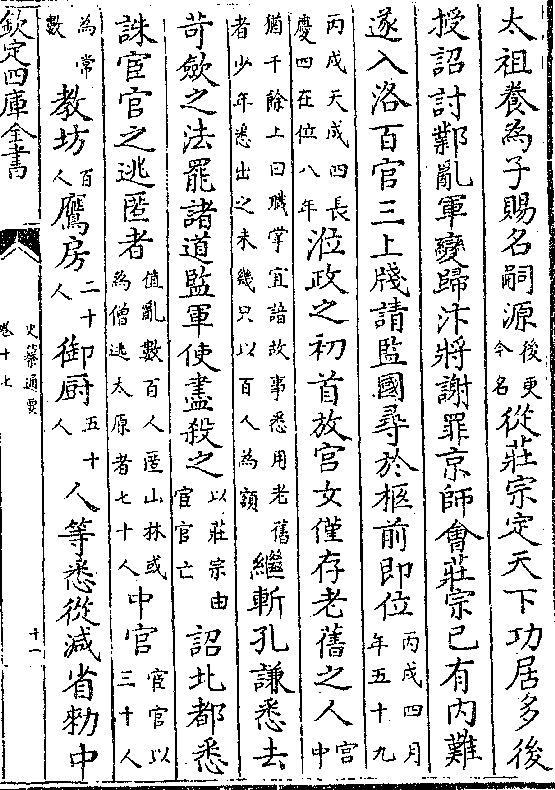 太祖養為子賜名嗣源後更今名從莊宗定天下功居多後
授詔討鄴亂軍變歸汴將謝罪京師會莊宗已有内難
遂入洛百官三上牋請監國尋於柩前即位丙戌四月年五十九
丙戌天成四長慶四在位八年涖政之初首放宫女僅存老舊之人宫中
猶千餘上曰職掌宜諳故事悉用老舊者少年悉出之未幾只以百人為額繼斬孔謙悉去
苛斂之法罷諸道監軍使盡殺之以莊宗由宦官亡詔北都悉
誅宦官之逃匿者值亂數百人匿山林或為僧逃太原者七十人中官宦官以三十人
為常數教坊百人鷹房二十人御厨五十人人等悉從減省勑中
欽定四庫全書
史纂通要
卷十七
十一